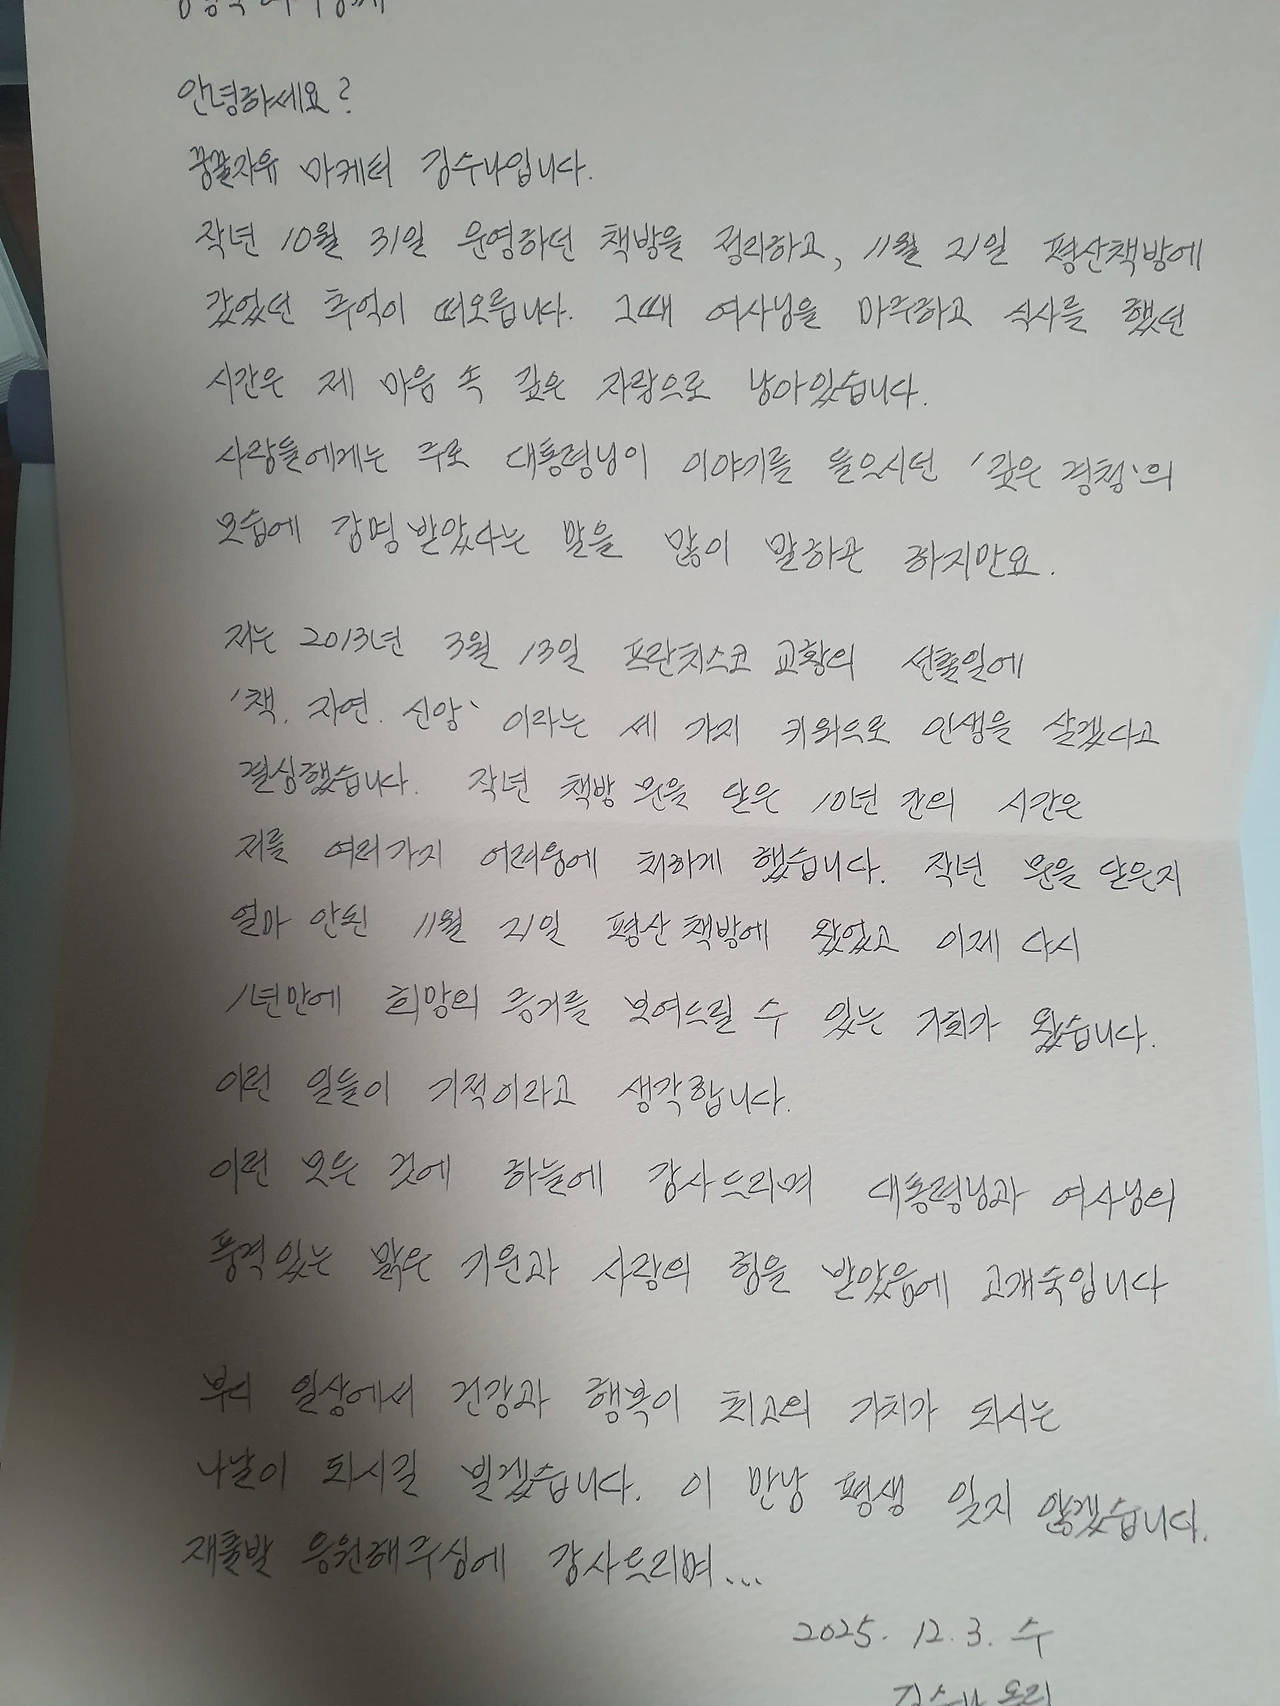 안녕하세요?
꿍꿀자유 마케터 김수나입니다.
작년 10월 31일 운영하던 책방을 정리하고, 11월 21일 평산책방에
갔었던 추억이 떠오릅니다. 그때 여사님을 마주하고 식사를 했던
시간은 제 마음 속 깊은 사랑으로 남아있습니다.
사람들에게는 주로 대통령님이 이야기를 들으시던 '깊은 경청'의
모습에 감명 받았다는 말을 많이 말하곤 하지만요.
저는 2013년 3월 13일 프란치스코 교황의 선출일에
'책. 자연. 신앙' 이라는 세 가지 키워으로 인생을 살겠다고
결심했습니다. 작년 책방 문을 닫은 10년 간의 시간은
저를 여러가지 어려움에 처하게 했습니다. 작년 문을 닫은지
얼마 안된 11월 21일 평산 책방에 왔었고 이제 다시
1년만에 희망의 증거를 보여드릴 수 있는 기회가 왔습니다.
이런 일들이 기적이라고 생각합니다.
이런 모든 것에 하늘에 감사드리며 대통령님과 여사님의
품격있는 맑은 기운과 사랑의 힘을 받았음에 고개숙입니다
부디 일상에서 건강과 행복이 최고의 가치가 되시는
나날이 되시길 빌겠습니다. 이 만남 평생 잊지 않겠습니다.
재출발 응원해주심에 감사드리며...
2025. 12. 3. 수